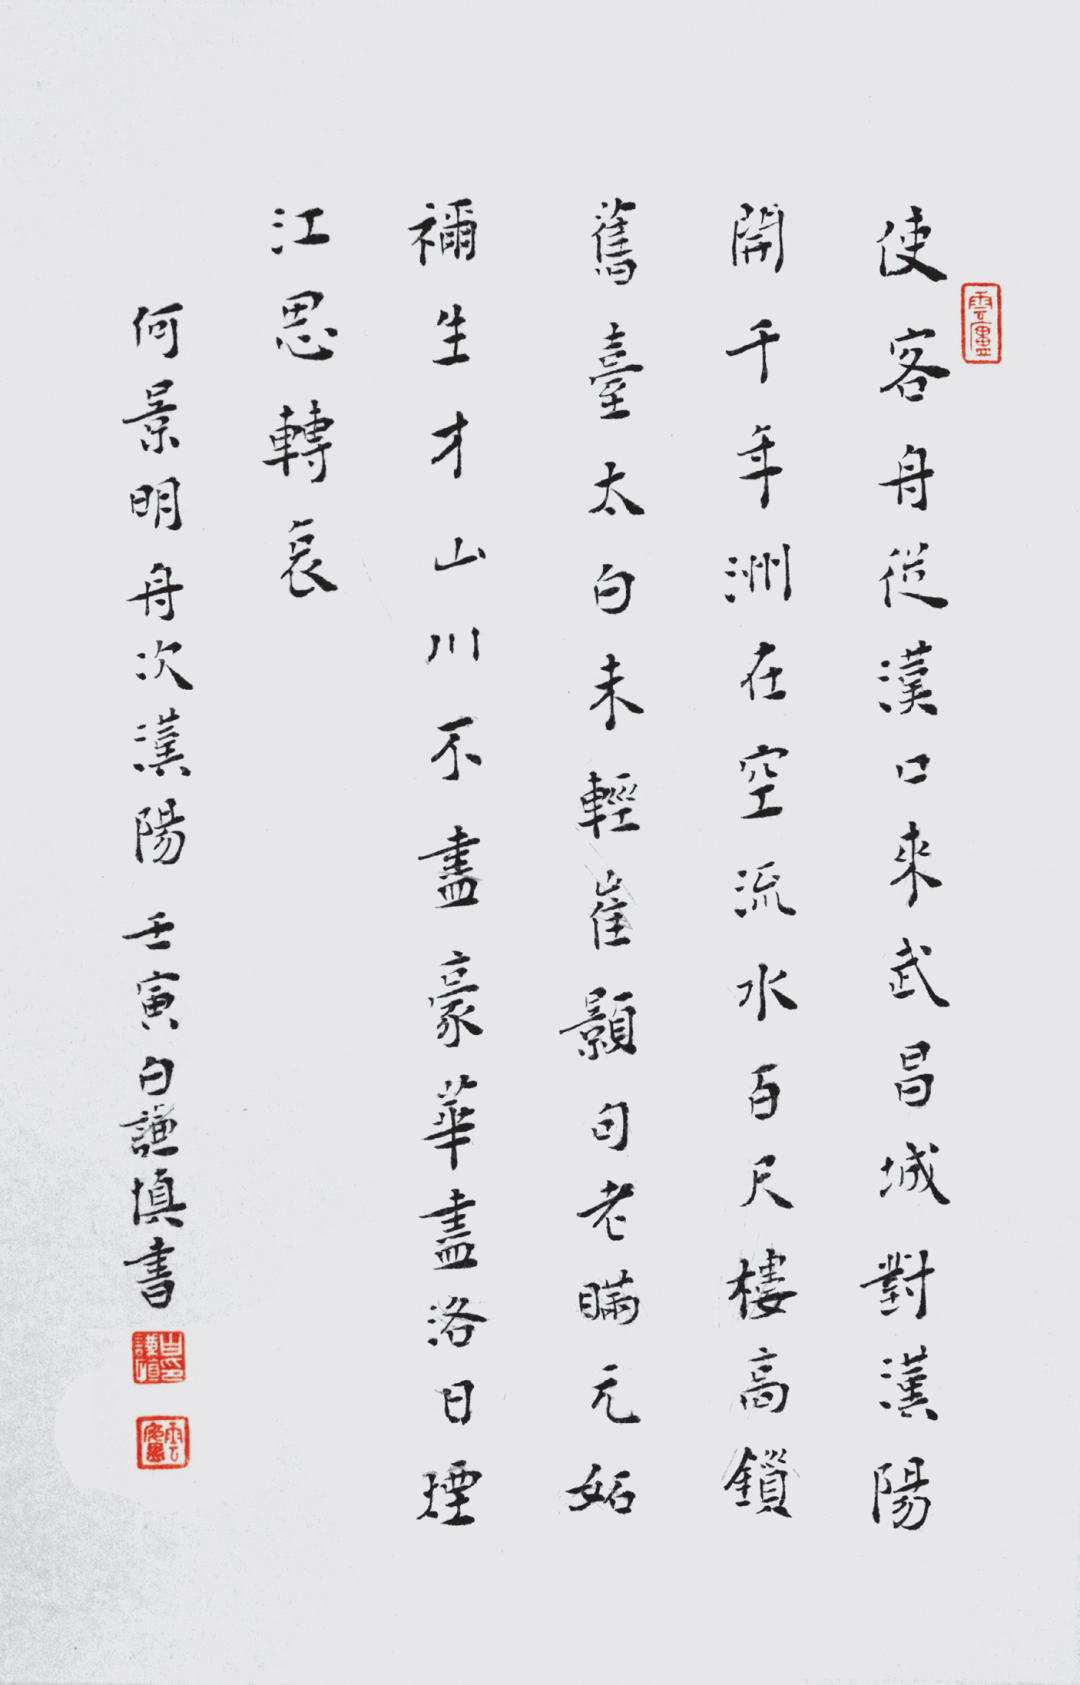 使客舟從漢口來武昌城對漢陽
開千年洲在空流水百尺樓高鎖
舊臺太白未輕崔顥句老瞞元妬
禰生才山川不盡豪華盡落日煙
江思轉哀
何景明舟次漢陽 壬寅白謙慎書